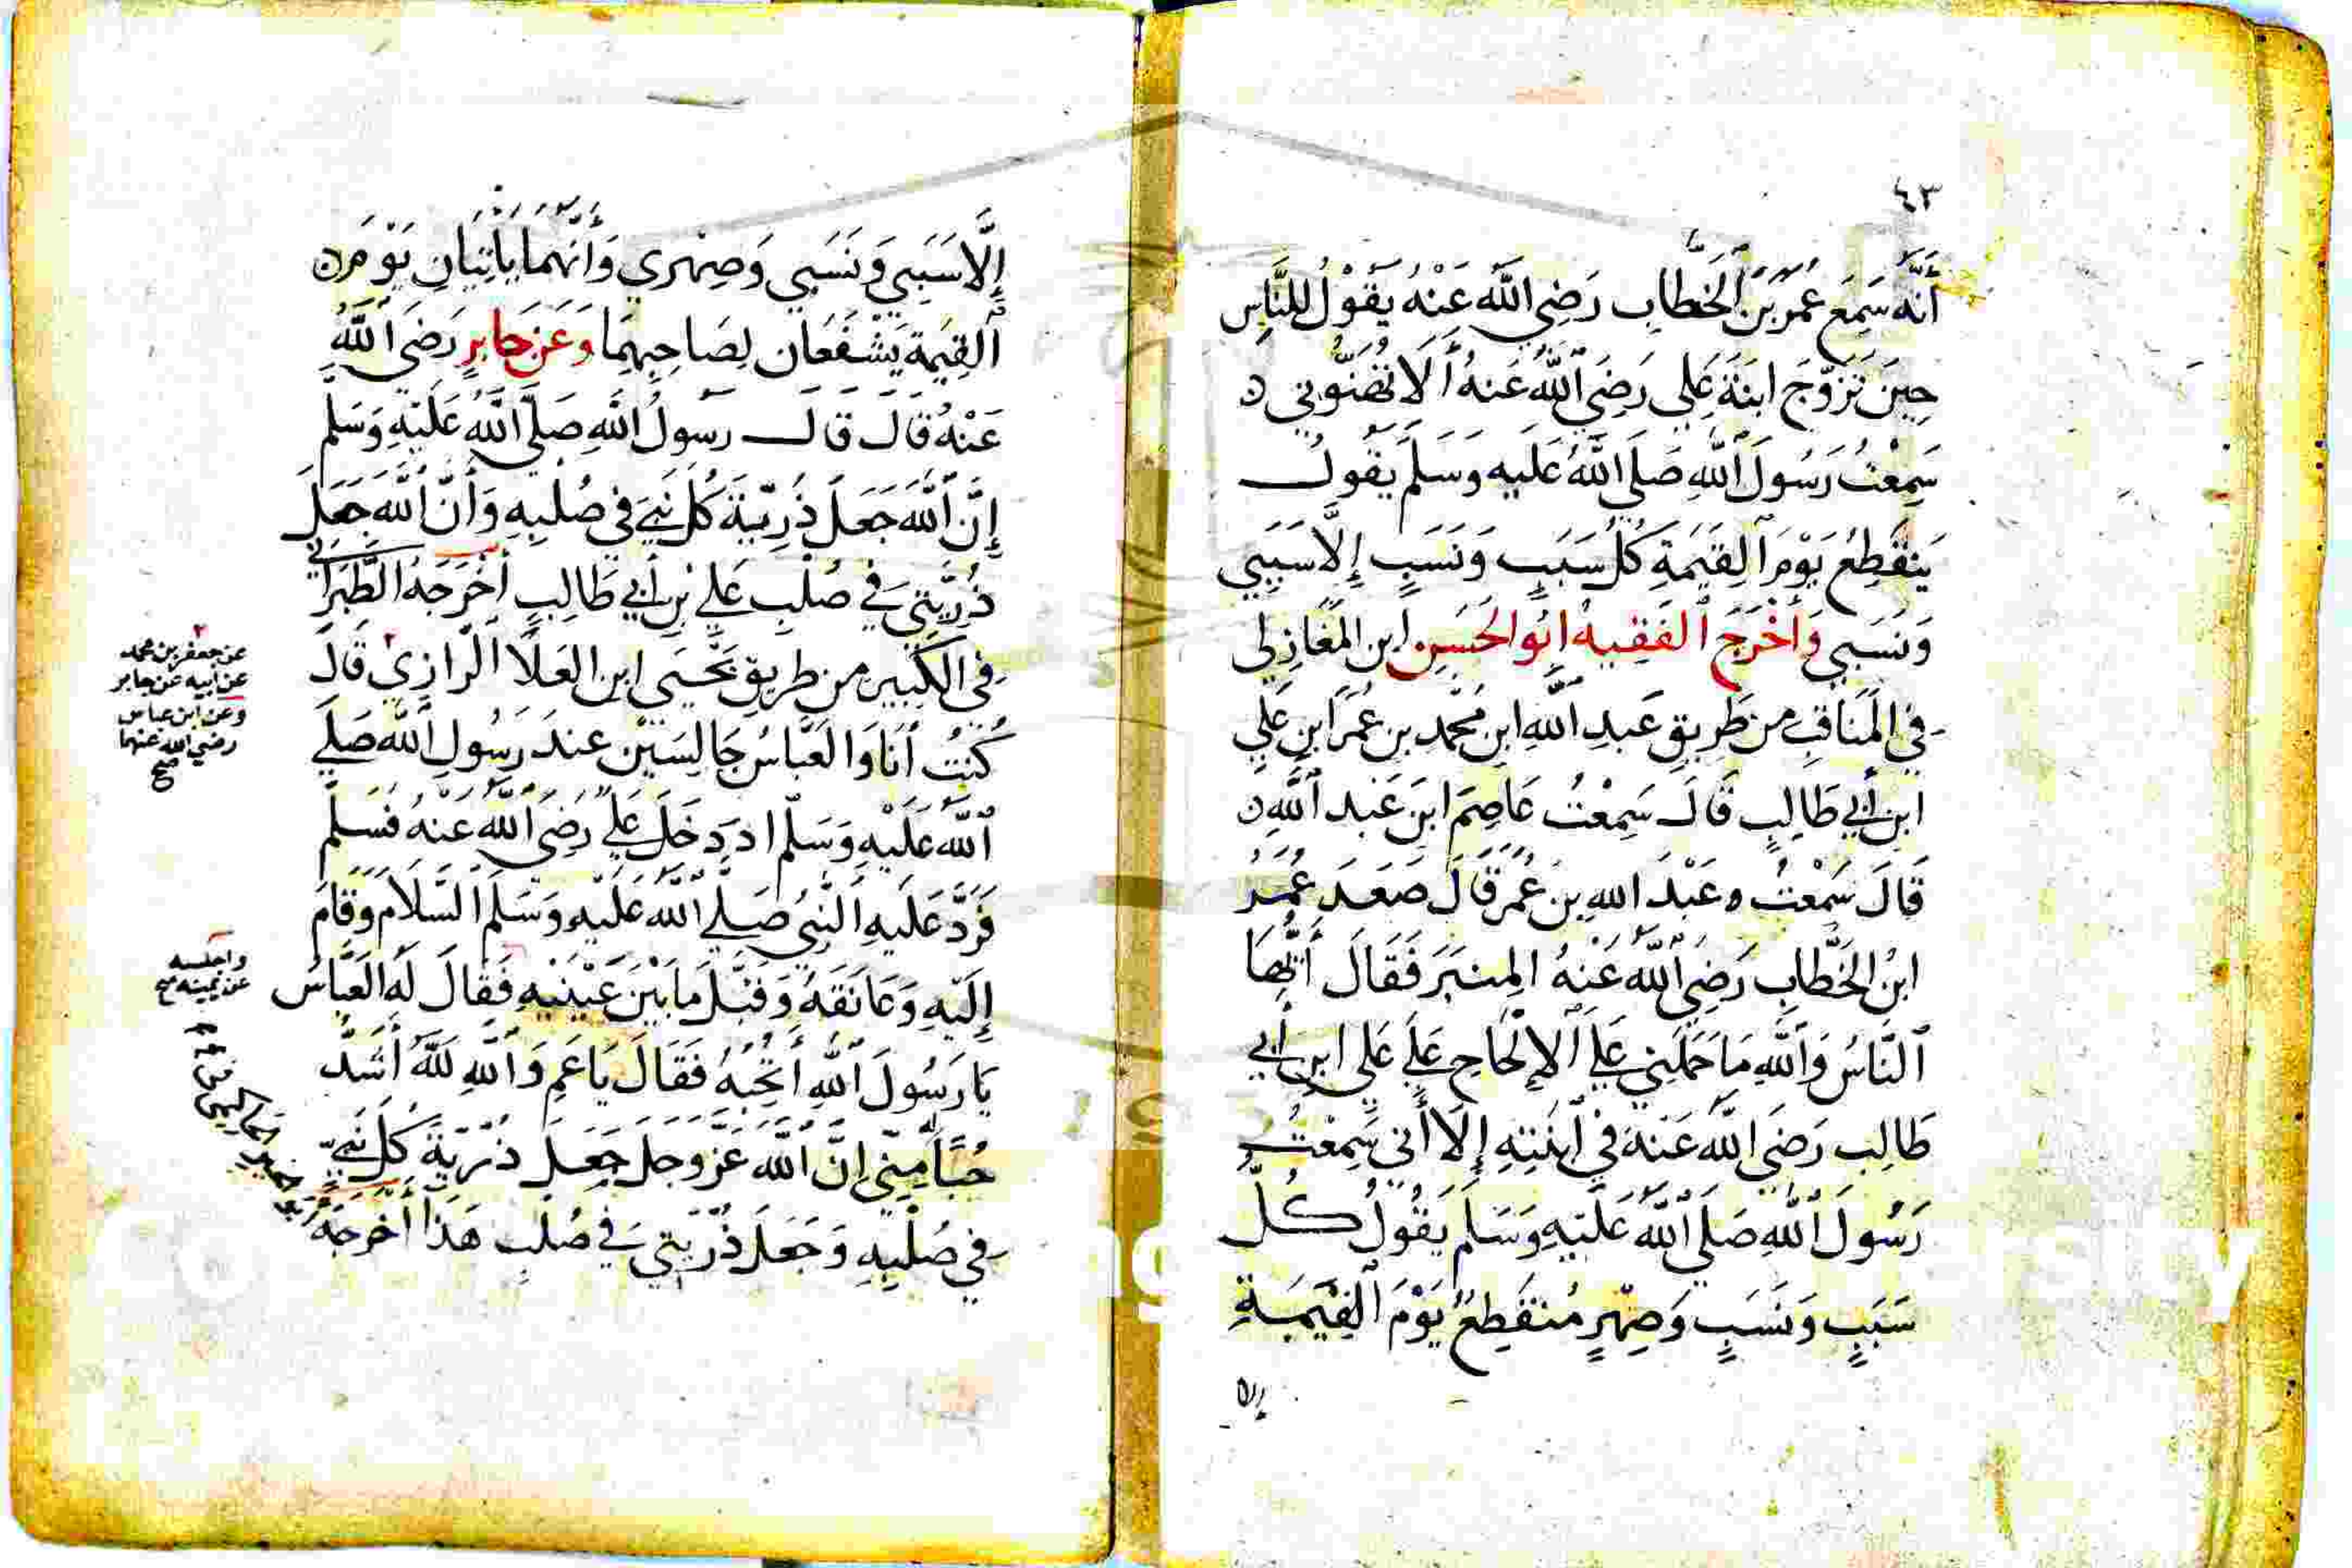 ٤٣
أَنَّهُ سَمِعَ عُمَرَ بْنَ الْخَطَّابِ رَضِيَ اللَّهُ عَنْهُ يَقُولُ لِلنَّاسِ
حِينَ تَزَوَّجَ ابْنَةَ عَلِي رَضِيَ اللَّهُ عَنْهُ أَلَا تُهَنُّونِي
سَمِعْتُ رَسُولَ اللَّهِ صَلَّى اللَّهُ عَلَيْهِ وَسَلَّمَ يَقُولُ
يَنْقَطِعُ يَوْمَ الْقِيَمَةِ كُلُّ سَبَبٍ وَنَسَبٍ إِلَّا سَبَبِي
وَنَسَبِي وَأَخْرَجَ الْفَقِيهُ أَبُو الْحَسَنِ ابن الْمَغَازِلِي
فِي الْمَنَاقِبِ مِنْ طَرِيقِ عَبْدِ اللَّهِ ابْنِ مُحَمَّدِ بنِ عُمَرَ ابْنِ عَلِي
ابْنِ أَبِي طَالِبٍ قَالَ سَمِعْتُ عَاصِمَ ابْنَ عَبْدِ اللَّهِ
قَالَ سَمِعْتُ عَبْدَ اللهِ بنَ عُمَرَ قَالَ صَعَدَ عُمَرُ
ابْنُ الْخَطَّابِ رَضِيَ اللَّهُ عَنْهُ الْمِنْبَرَ فَقَالَ أَيُّهَا
النَّاسُ وَاللَّهِ مَا حَمَلَنِي عَلَى الْإِلْحَاحِ عَلَى عَلِي ابْنِ أَبِي
طَالِبٍ رَضِيَ اللَّهُ عَنْهُ فِي ابْنَتِهِ إِلَّا أَنِّي سَمِعْتُ
رَسُولَ اللَّهِ صَلَّى اللَّهُ عَلَيْهِ وَسَلَّمَ يَقُولُ كُلُّ
سَبَبٍ وَنَسَبٍ وَصِهْرٍ مُنْقَطِعٌ يَوْمَ الْقِيَمَةِ
إلا
إِلَّا سَبَبِي وَنَسَبِي وَصِهْرِي وَأَنَّهُمَا يَأْتِيَانِ يَوْمَ
الْقِيَمَةِ يَشْفَعَانِ لِصَاحِبِهِمَا وَعَنْ جَابِرٍ رَضِيَ اللَّهُ
عَنْهُ قَالَ قَالَ رَسُولُ اللَّهِ صَلَّى اللَّهُ عَلَيْهِ وَسَلَّم
إِنَّ اللَّهَ جَعَلَ ذُرِّيَّةَ كُلِّ نَبِيٍّ فِي صُلْبِهِ وَأَنَّ اللَّهَ جَعَلَ
ذُرِّيَّتِي فِي صُلْبِ عَلِي بْنِ أَبِي طَالِبٍ أَخْرَجَهُ الطَّبَرَانِي
فِي الْكَبِيرِ مِنْ طَرِيقِ يَحْيَى ابنِ الْعَلَا الرَّازِيّ قَالَ
عن جعفر بن محمد
عن أبيه عن جابر
وعن ابن عباس
رضي الله عنهما
صح
كُنْتُ أَنَا وَالْعَبَّاسُ جَالِسَيْنِ عِنْدَ رَسُولِ اللَّهِ صَلَّى
اللَّهُ عَلَيْهِ وَسَلَّمَ ا دَ دَخَلَ عَلِيّ رَضِيَ اللَّهُ عَنْهُ فَسَلَّمَ
فَرَدَّ عَلَيْهِ النَّبِيُّ صَلَّى اللَّهُ عَلَيْهِ وَسَلَّمَ السَّلَامَ وَقَامَ
إِلَيْهِ وَعَانَقَهُ وَقَبَّلَ مَا بَيْنَ عَيْنَيْهِ فَقَالَ لَهُ الْعَبَّاسُ
واجلسه
عن يمينه صح
يَا رَسُولَ اللَّهِ أَتُحِبُّهُ فَقَالَ يَا عَمِّ وَاللَّهِ لَلَّهُ أَشَدُّ
حُبًّا مِنِّي إِنَّ اللَّهَ عَزَّ وَجَلَّ جَعَلَ ذُرِّيَّةَ كُلِّ نَبِيٍّ
فِي صُلْبِهِ وَجَعَلَ ذُرِّيَّتِي فِي صُلْبِ هَذَا أَخْرَجَهُ